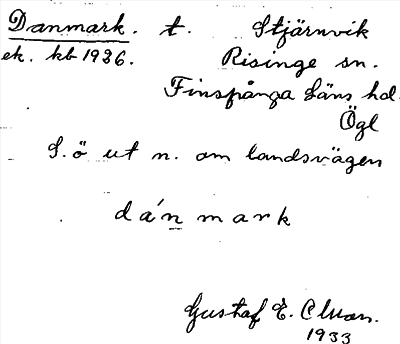 Danmark. t. Stjärnvik
ek. kb 1936. Risinge sn.
Finspånga Läns hd.
Ögl
S.ö ut n. om landsvägen
dánmark
Gustaf E.
1933